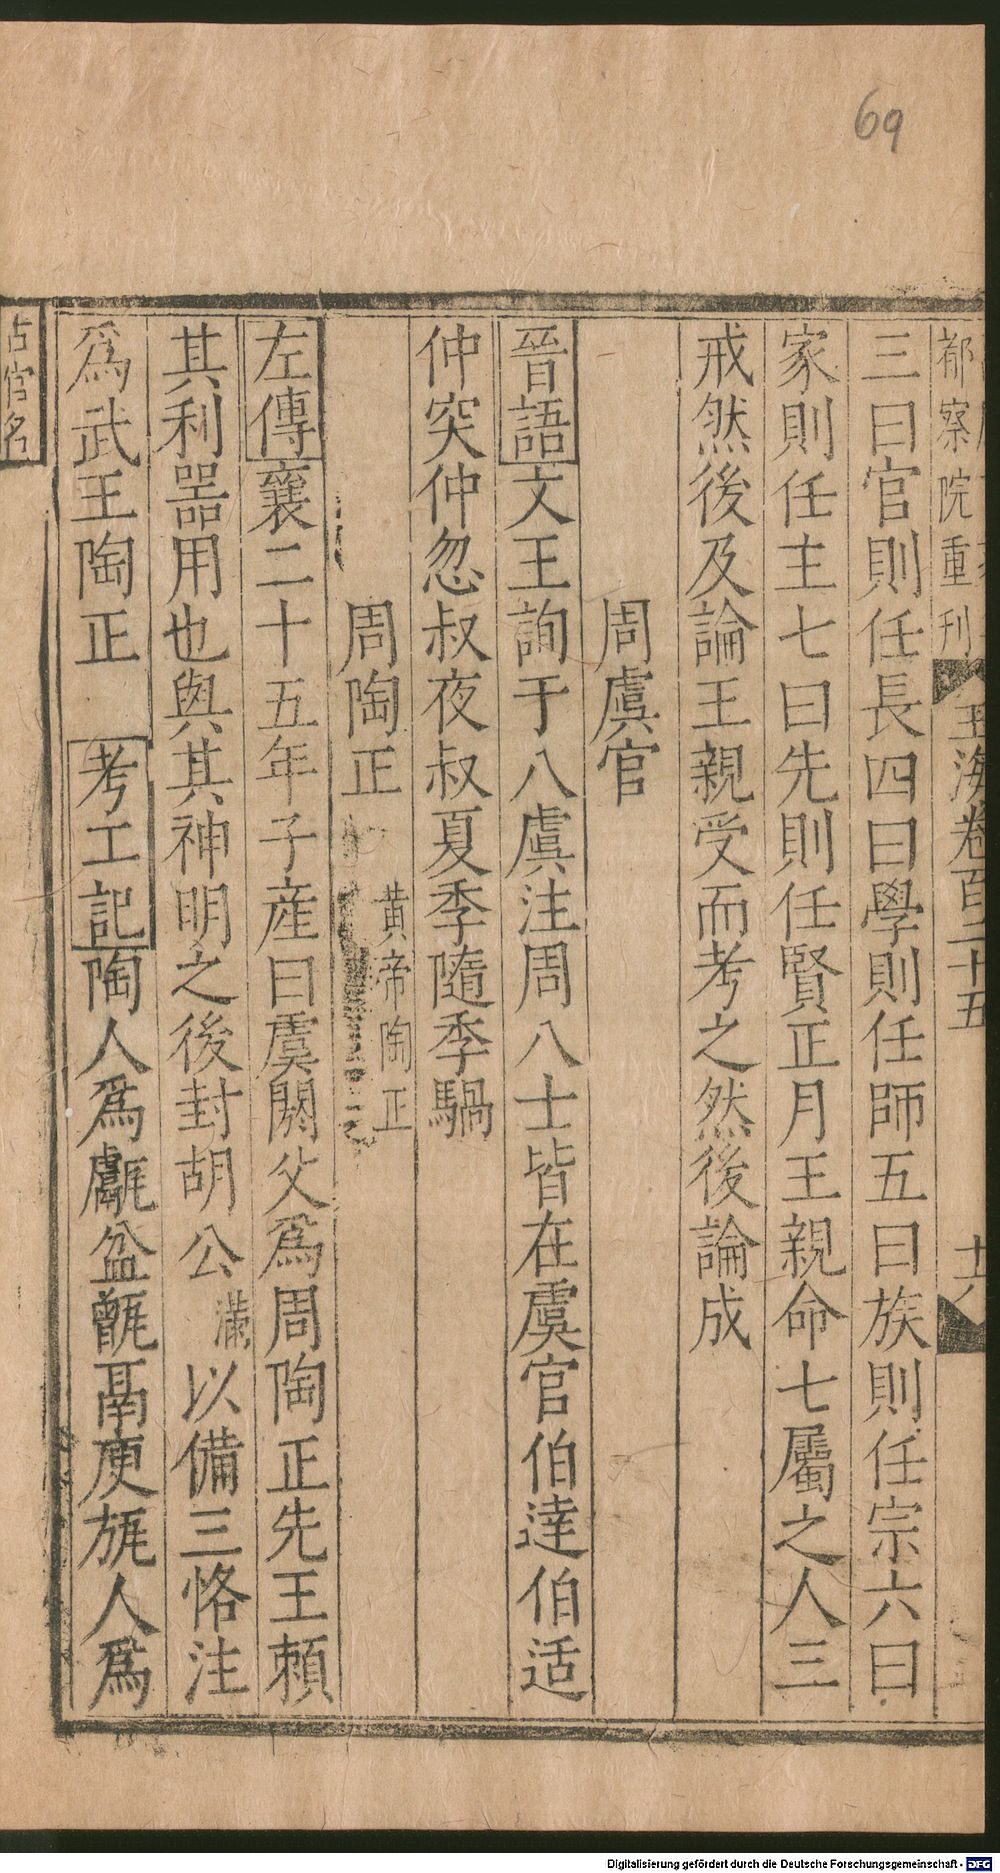 69
都察院重刊
玉海卷百二十五
十六
三曰官則任長四曰學則任師五曰族則任宗六曰
家則任主七曰先則任賢正月王親命七屬之人三
戒然後及論王親受而考之然後論成
周虞官
晉語文王詢于八虞注周八士皆在虞官伯達伯适
仲突仲忽叔夜叔夏季隨季騧
周陶正
黃帝陶正
左傳襄二十五年子産曰虞閼父爲周陶正先王賴
其利噐用也與其神明之後封胡公滿以備三恪注
爲武王陶正 考工記陶人爲甗盆甑鬲庾旊人爲
官名
Digitalisierung gefördert durch die Deutsche Forschungsgemeinschaft - DFG